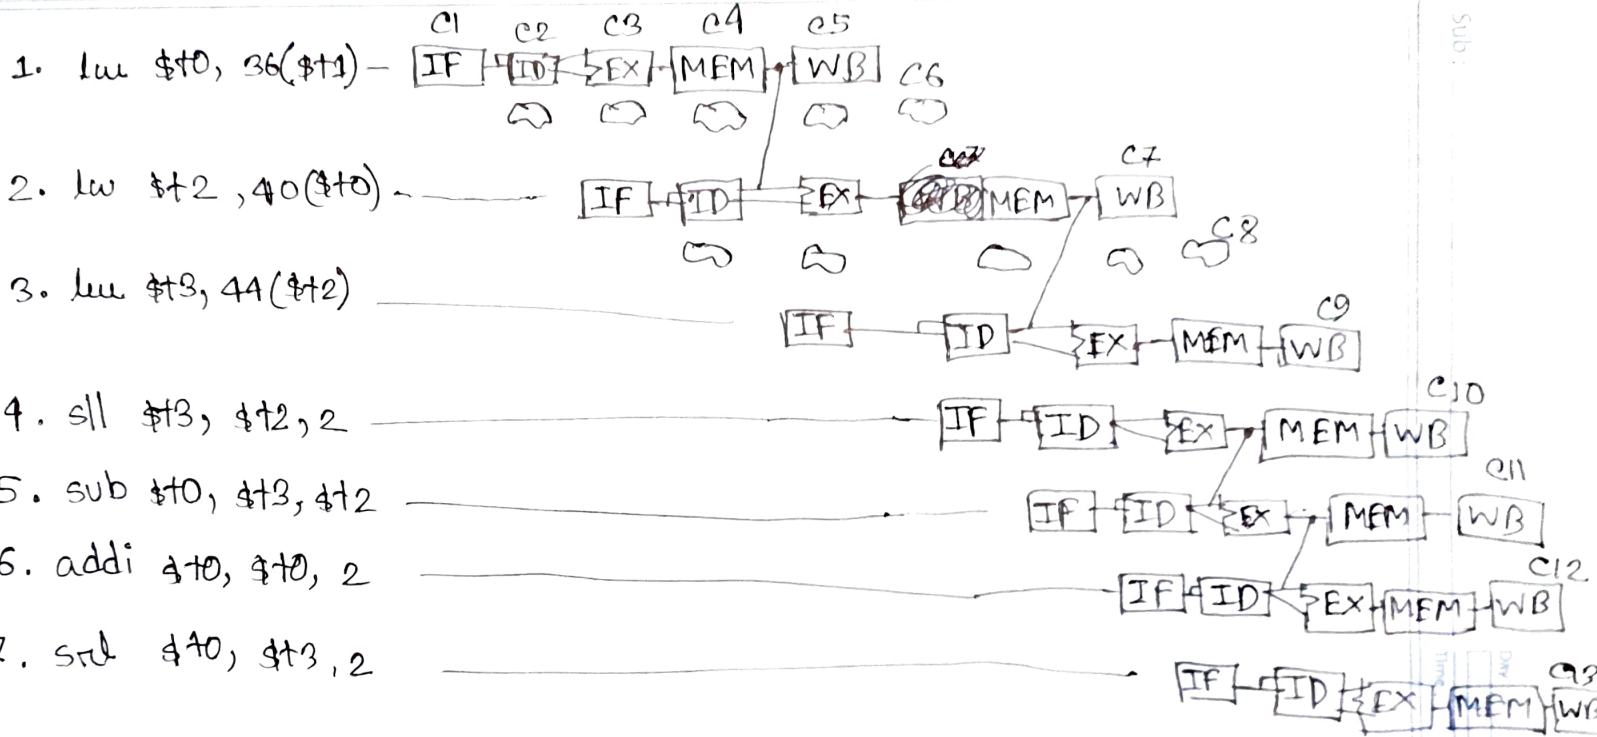 C1 C2 C3 C4 C5
1. lw $t0, 36($t1) – IF ID EX MEM WB C6
C7
2. lw $t2, 40($t0) - IF ID EX MEM WB
C8
3. lw $t3, 44($t2)
C9
IF ID EX MEM WB
C10
4. sll $t3, $t2, 2 IF ID EX MEM WB
C11
5. sub $t0, $t3, $t2 IF ID EX MEM WB
C12
6. addi $t0, $t0, 2 IF ID EX MEM WB
. srl $t0, $t3, 2 IF ID EX MEM
Sub:
Day
Time